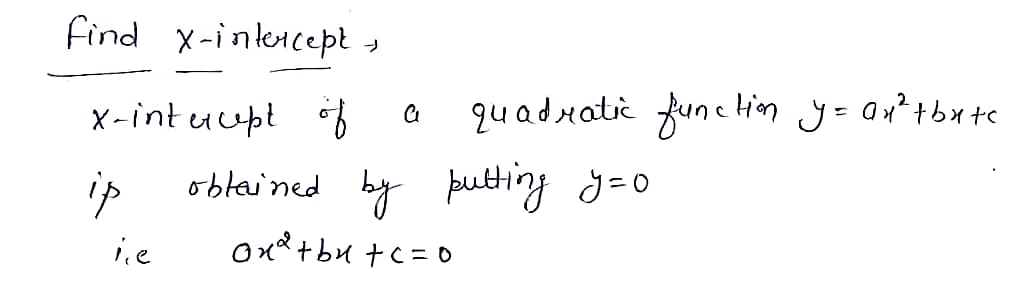 Find x-intercept →
x-intercept of a quadratic function y = ax²+bx+c
is obtained by putting y=0
i.e ax²+bx+c=0